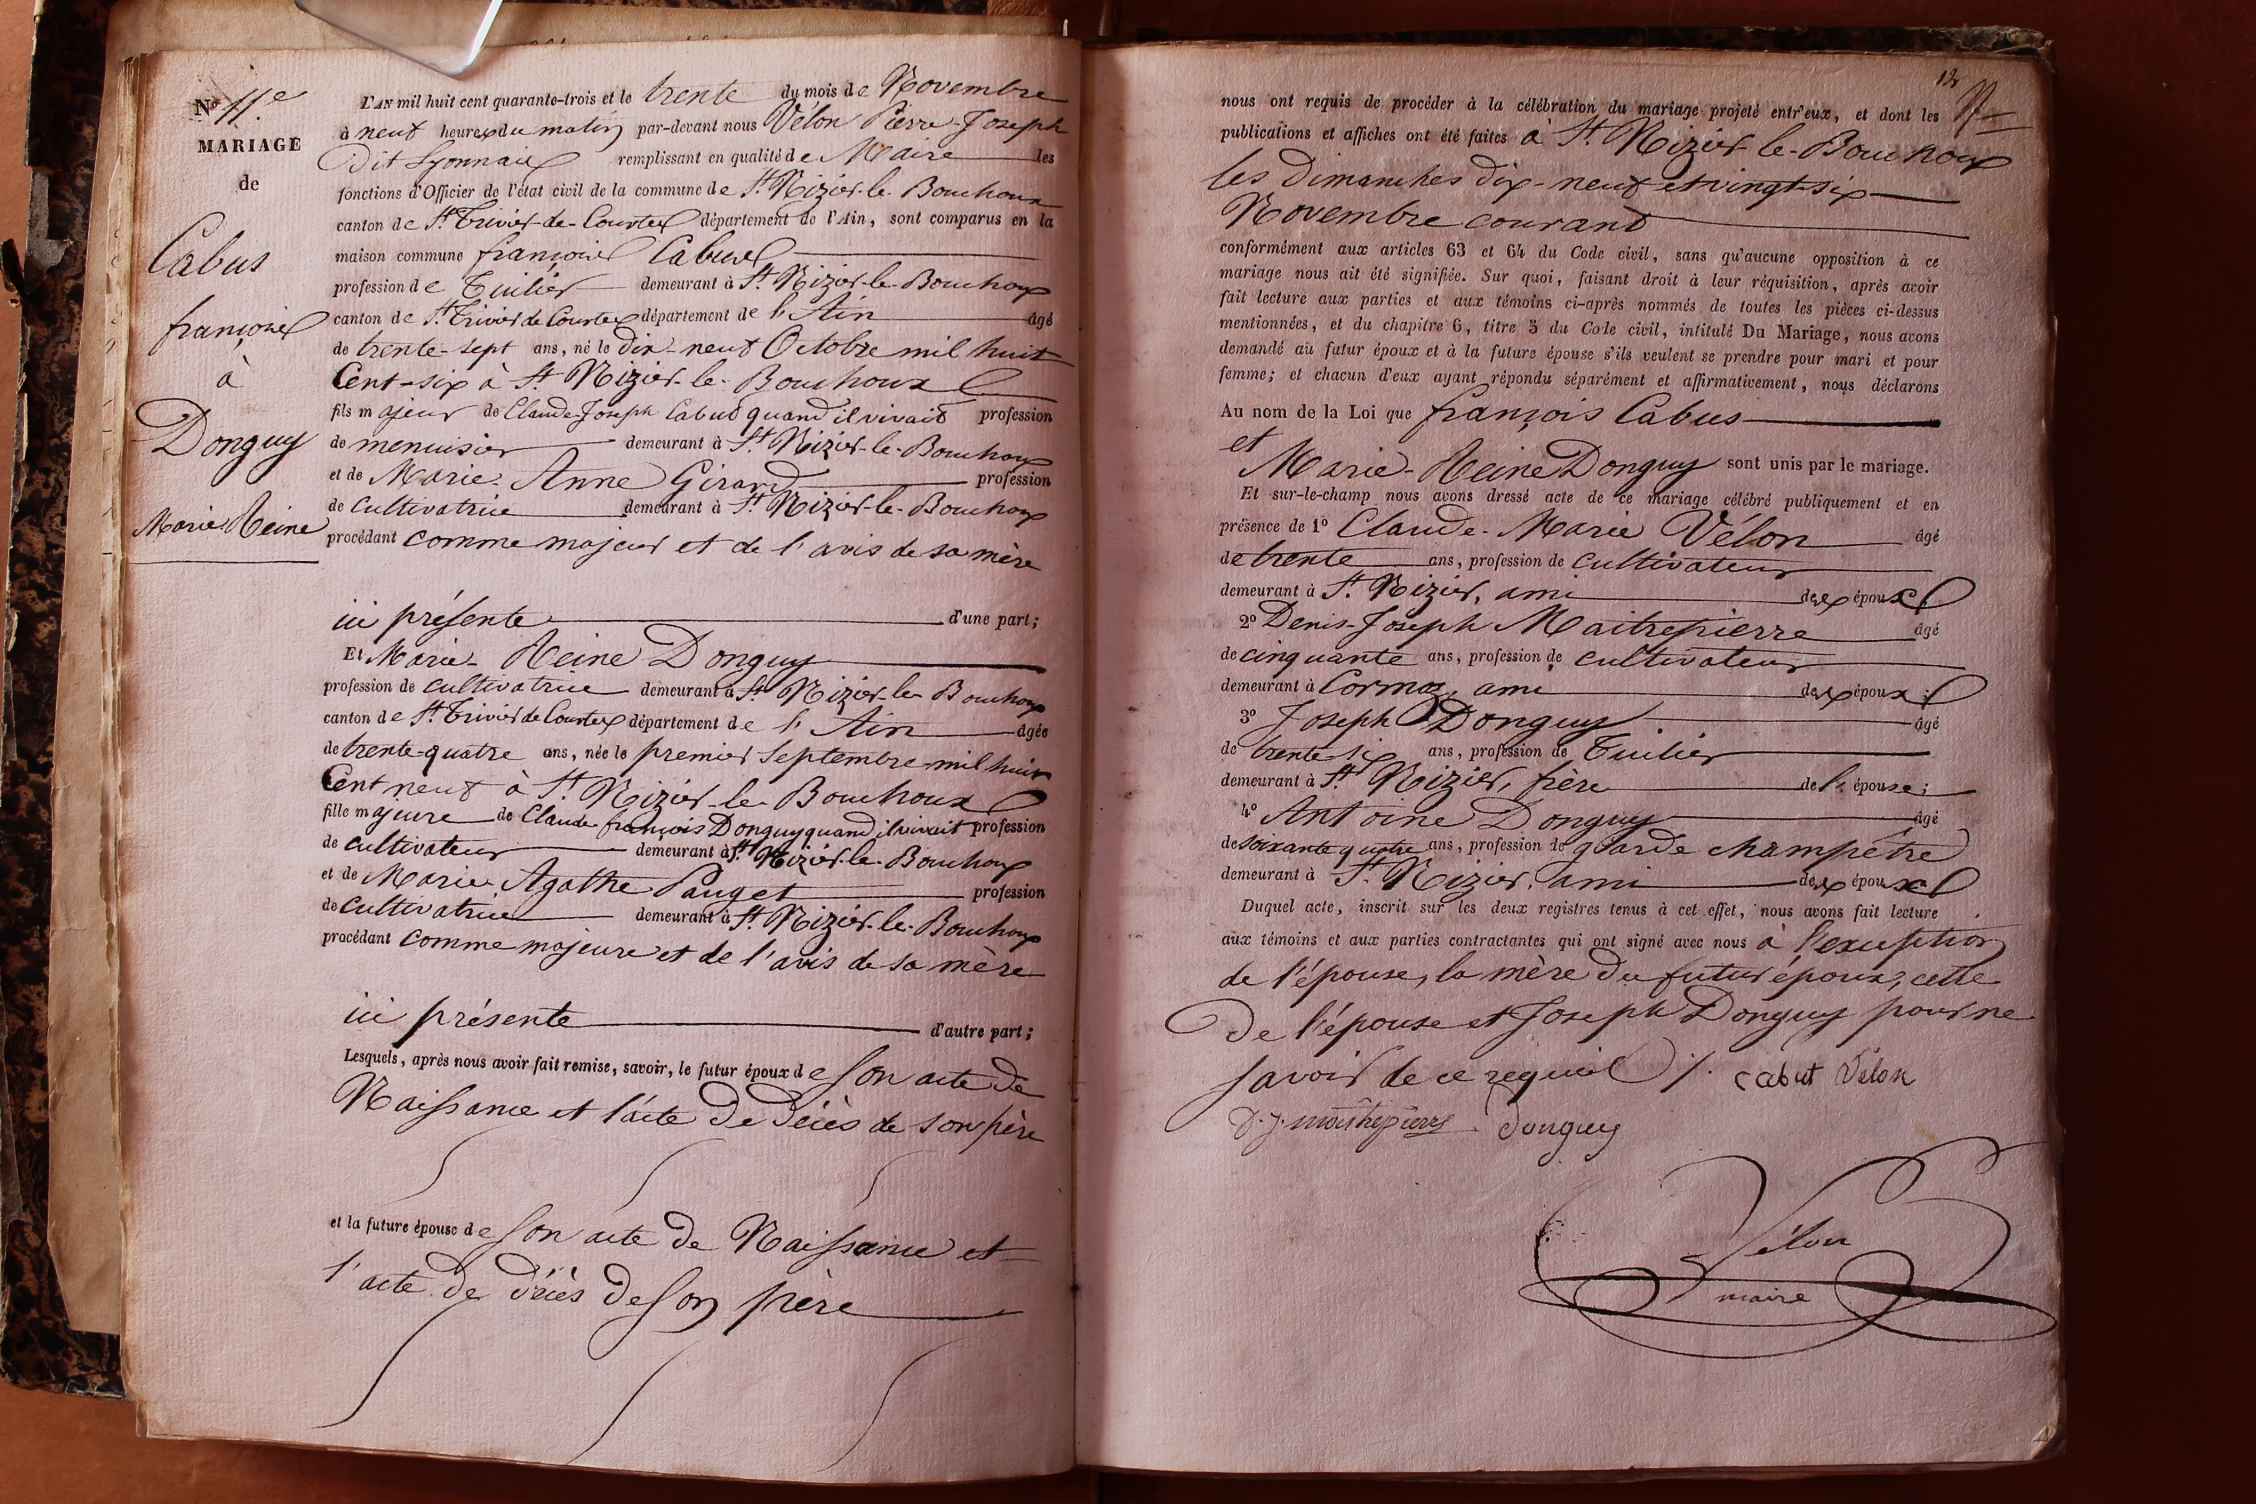 Nº 11e
MARIAGE
de
Cabus
françois
à
Donguy
Marie Reine
L'AN mil huit cent quarante-trois et le trente du mois de Novembre
à neuf heures du matin par-devant nous Vélon Pierre-Joseph
dit Lyonnais remplissant en qualité de Maire les
fonctions d'Officier de l'état civil de la commune de St. Nizier-le-Bouchoux
canton de St. Trivier-de-Courtes département de l'Ain, sont comparus en la
maison commune françois Cabus
profession de Tuilier demeurant à St. Nizier-le-Bouchoux
canton de St. Trivier de Courtes département de l'Ain âgé
de trente-sept ans, né le dix-neuf Octobre mil huit
Cent-six à St. Nizier-le-Bouchoux
fils majeur de Claude-Joseph Cabus quand il vivait profession
de menuisier demeurant à St. Nizier-le-Bouchoux
et de Marie-Anne Girard profession
de cultivatrice demeurant à St. Nizier-le-Bouchoux
procédant comme majeur et de l'avis de sa mère
ici présente d'une part;
Et Marie-Reine Donguy
profession de cultivatrice demeurant à St. Nizier-le-Bouchoux
canton de St. Trivier de Courtes département de l'Ain âgée
de trente-quatre ans, née le premier Septembre mil huit
Cent neuf à St. Nizier-le-Bouchoux
fille majeure de Claude françois Donguy quand il vivait profession
de cultivateur demeurant à St. Nizier-le-Bouchoux
et de Marie Agathe Pauget profession
de cultivatrice demeurant à St. Nizier-le-Bouchoux
procédant comme majeure et de l'avis de sa mère
ici présente d'autre part;
Lesquels, après nous avoir fait remise, savoir, le futur époux de son acte de
Naissance et l'acte de décès de son père
et la future épouse de son acte de Naissance et
l'acte de décès de son père
12
nous ont requis de procéder à la célébration du mariage projeté entr'eux, et dont les
publications et affiches ont été faites à St. Nizier-le-Bouchoux
les Dimanches dix-neuf et vingt-six
Novembre courant
conformément aux articles 63 et 64 du Code civil, sans qu'aucune opposition à ce
mariage nous ait été signifiée. Sur quoi, faisant droit à leur réquisition, après avoir
fait lecture aux parties et aux témoins ci-après nommés de toutes les pièces ci-dessus
mentionnées, et du chapitre 6, titre 5 du Code civil, intitulé Du Mariage, nous avons
demandé au futur époux et à la future épouse s'ils veulent se prendre pour mari et pour
femme; et chacun d'eux ayant répondu séparément et affirmativement, nous déclarons
Au nom de la Loi que françois Cabus
et
Marie-Reine Donguy sont unis par le mariage.
Et sur-le-champ nous avons dressé acte de ce mariage célébré publiquement et en
présence de 1º Claude-Marie Vélon âgé
de trente ans, profession de cultivateur
demeurant à St. Nizier, ami des époux;
2º Denis-Joseph Maitrepierre âgé
de cinquante ans, profession de cultivateur
demeurant à Cormoz, ami des époux;
3º Joseph Donguy âgé
de trente six ans, profession de Tuilier
demeurant à St. Nizier, frère de l'épouse;
4º Antoine Donguy âgé
de soixante quatre ans, profession de garde champêtre
demeurant à St. Nizier, ami des époux
Duquel acte, inscrit sur les deux registres tenus à cet effet, nous avons fait lecture
aux témoins et aux parties contractantes qui ont signé avec nous à l'exception
de l'épouse, la mère du futur époux, celle
de l'épouse et Joseph Donguy pour ne
savoir de ce requis ./. cabut Vélon
D. J. Maitrepierre Donguy
Vélon
maire